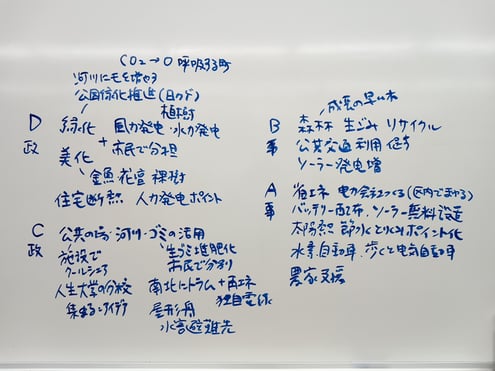 CO2→0 呼吸する町
河川に毛を増やす
公園緑化推進(目かげ)
植樹
D 緑化 風力発電・水力発電
政 + 市民で分担
美化
金魚 花壇 裸樹
住宅断熱 人力発電ポイント
C 公共の場・河川・ゴミの活用
政 施設で 生ゴミ堆肥化
クールシェア 市民で分別
人生大学の分校 南北にトラム+再エネ
集まるとアイデア 独自電線
屋形舟
水害避難先
成長の早い木
B 森林 生ごみ リサイクル
事 公共交通利用促進
ソーラー発電増
A 省エネ 電力会社をつくる(区内でまかなう)
事 バッテリー配布 ソーラー無料設置
太陽熱 節約とりくみポイント化
水素自動車 歩くと電気自動車
農家支援